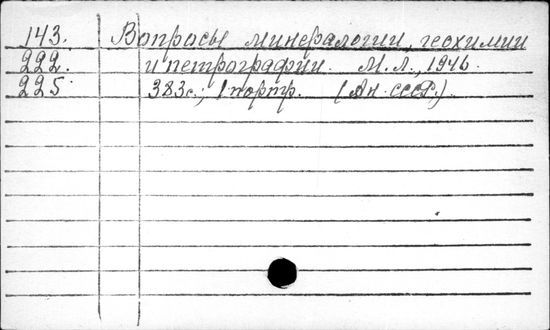 143. Вопросы минералогии, геохимии
222. и петрографии. М.Л., 1946.
225. 383с., 1 портр. (Ан СССР.)